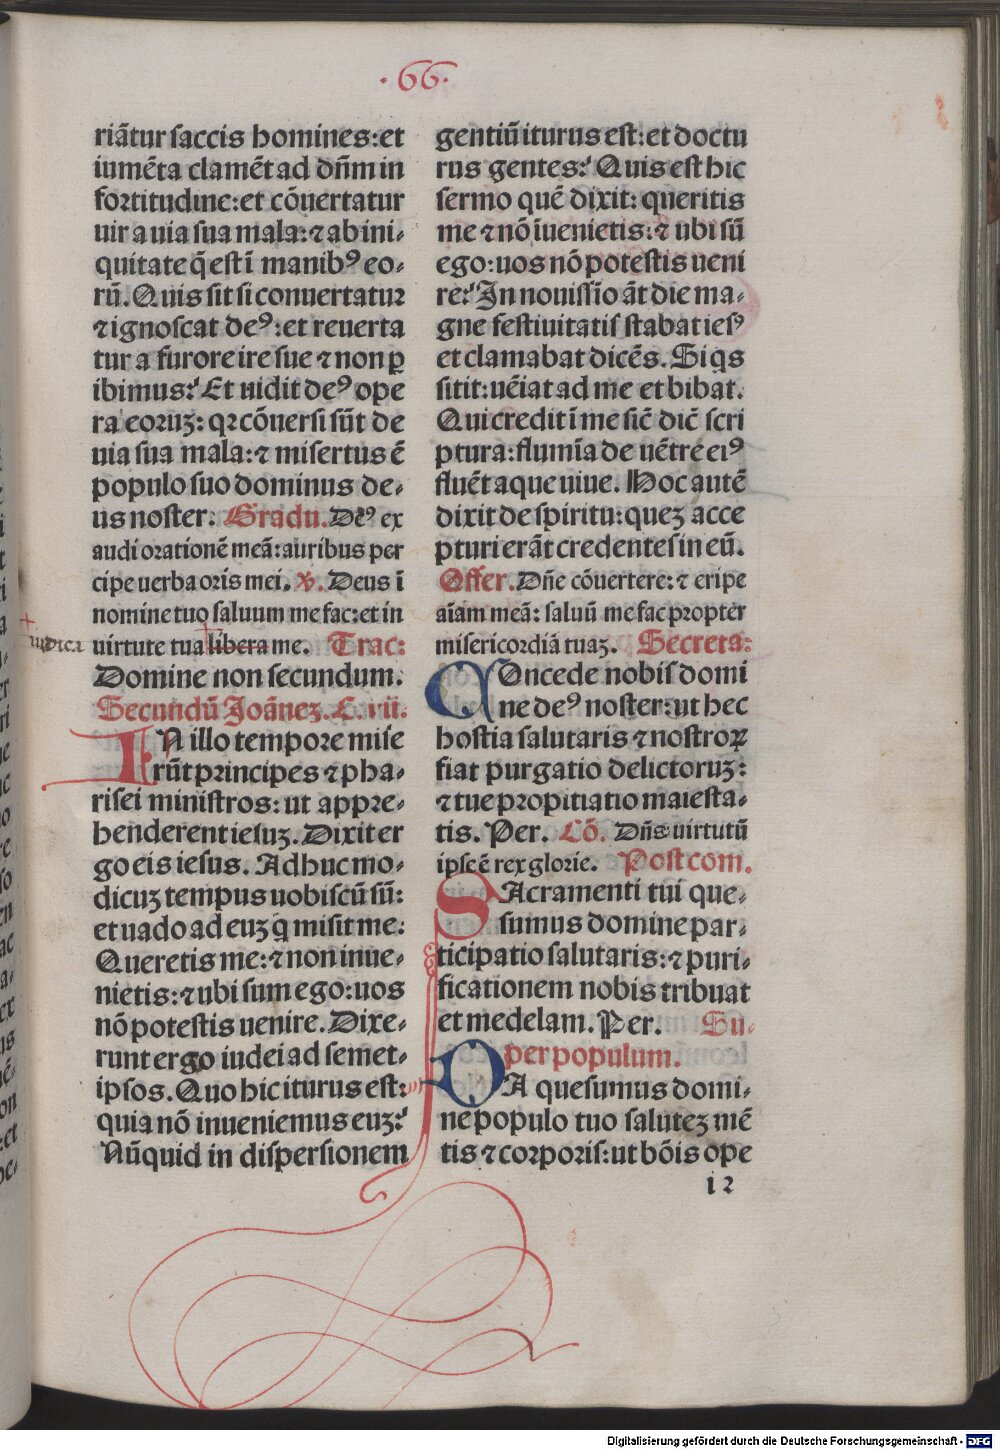 .66.
riãtur saccis homines:et
iumẽta clamẽt ad dñm in
fortitudine:et cõuertatur
uir a uia sua mala:⁊ ab ini-
quitate q̃ est ĩ manibꝰ eo-
rũ. Quis sit si conuertatur
⁊ ignoscat deꝰ:et reuerta
tur a furore ire sue ⁊ non ꝑ
ibimus? Et uidit deꝰ ope
ra eoruꝫ: qꝛ cõuersi sũt de
uia sua mala:⁊ misertus ẽ
populo suo dominus de-
us noster. Gradu. Deꝰ ex
audi orationẽ meã:auribus per
cipe uerba oris mei. V. Deus ĩ
nomine tuo saluum me fac:et in
iudica
uirtute tua libera me. Trac:
Domine non secundum.
Secundũ Joãneꝫ. C. vii.
IN illo tempore mise
rũt principes ⁊ pha-
risei ministros: ut appre-
henderent iesuꝫ. Dixit er
go eis iesus. Adhuc mo-
dicuꝫ tempus uobiscũ sũ:
et uado ad euꝫ q̇ misit me:
Queretis me:⁊ non inue-
nietis:⁊ ubi sum ego:uos
nõ potestis uenire. Dixe-
runt ergo iudei ad semet-
ipsos. Quo hic iturus est:
quia nõ inueniemus euꝫ?
Nũquid in dispersionem
gentiũ iturus est:et doctu
rus gentes? Quis est hic
sermo quẽ dixit: queritis
me ⁊ nõ iuenietis:⁊ ubi sũ
ego:uos nõ potestis ueni
re? In nouissĩo ãt die ma-
gne festiuitatis stabat iesꝰ
et clamabat dicẽs. Si q̇s
sitit:uẽiat ad me et bibat.
Qui credit ĩ me sic̃ dic̃ scri
ptura:flumĩa de uẽtre eiꝰ
fluẽt aque uiue. Hoc autẽ
dixit de spiritu:queꝫ acce
pturi erãt credentes in eũ.
Offer. Dñe cõuertere:⁊ eripe
aĩam meã: saluũ me fac propter
misericordiã tuaꝫ. Secreta:
COncede nobis domi
ne deꝰ noster:ut hec
hostia salutaris ⁊ nostroꝝ
fiat purgatio delictoruꝫ:
⁊ tue propitiatio maiesta-
tis. Per. Cõ. Dñs uirtutũ
ipse ẽ rex glorie. Postcom.
SAcramenti tui que-
sumus domine par-
ticipatio salutaris:⁊ puri-
ficationem nobis tribuat
et medelam. Per. Su-
per populum.
DA quesumus domi-
ne populo tuo saluteꝫ mẽ
tis ⁊ corporis:ut bõis ope
i2
Digitalisierung gefördert durch die Deutsche Forschungsgemeinschaft - DFG